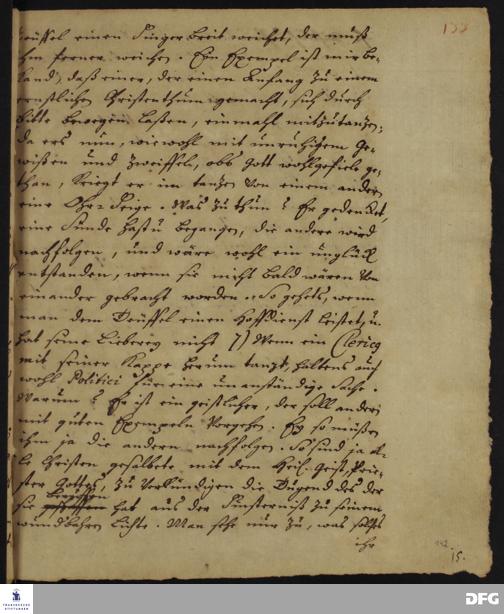 155
Teüffel einen Finger breit weichet, der muß
ihm ferner weichen. Ein Exempel ist mir be-
kand, daß einer, der einen Anfang zu einem
ernstlichen Christenthum gemacht, sich durch
bitte bewegen laßen, einmahl mitzutantzen;
da ers nun, wiewohl mit unruhigem Ge-
wißen und Zweiffeln, obs Gott wohlgefiele ge-
than, kriegt er im tantzen von einem andern
eine Ohr-Feige. Was zu thun? Er gedencket,
eine Sünde hastu begangen, die andere wird
nachfolgen, und wäre wohl ein unglück
entstanden, wenn sie nicht bald wären von
einander gebracht worden. So gehets, wenn
man dem Teüffel einen Hoffdienst leistet, u.
hat seine Lieberey nicht 7) Wenn ein Clericg
mit seiner Kappe herum tantzt, haltens auch
wohl Politici für eine unanständige Sache.
Warum? Er ist ein geistlicher, der soll andern
mit guten Exempeln vorgehen. Ey so müßen
ihm ja die andern nachfolgen. So sind ja al-
le Christen gesalbete mit dem Heil. Geist, Prie-
ster Gottes, zu verkündigen die Tugend des der
sie beruffen hat aus der Finsterniß zu seinem
wundbahren Lichte. Man sehe nur zu, was solches
ihr
142
15.
FRANCKESCHE
STIFTUNGEN
DFG